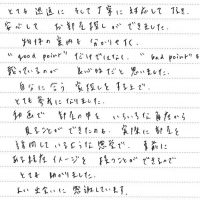 とても迅速に そして丁寧に対応して頂き、
安心して お部屋探しができました。
物件の案内も 分かりやすく、
"good point" だけではなく、"bad point"も
載っているのが 良心的だと思いました。
自分に合う 家探しをする上で、
とても参考になりました。
動画で 部屋の中を いろいろな角度から
見ることができたのも、実際に部屋を
訪問しているような感覚で、事前に
ある程度イメージを 持つことができるので
とても 助かりました。
よい出会いに 感謝しています。